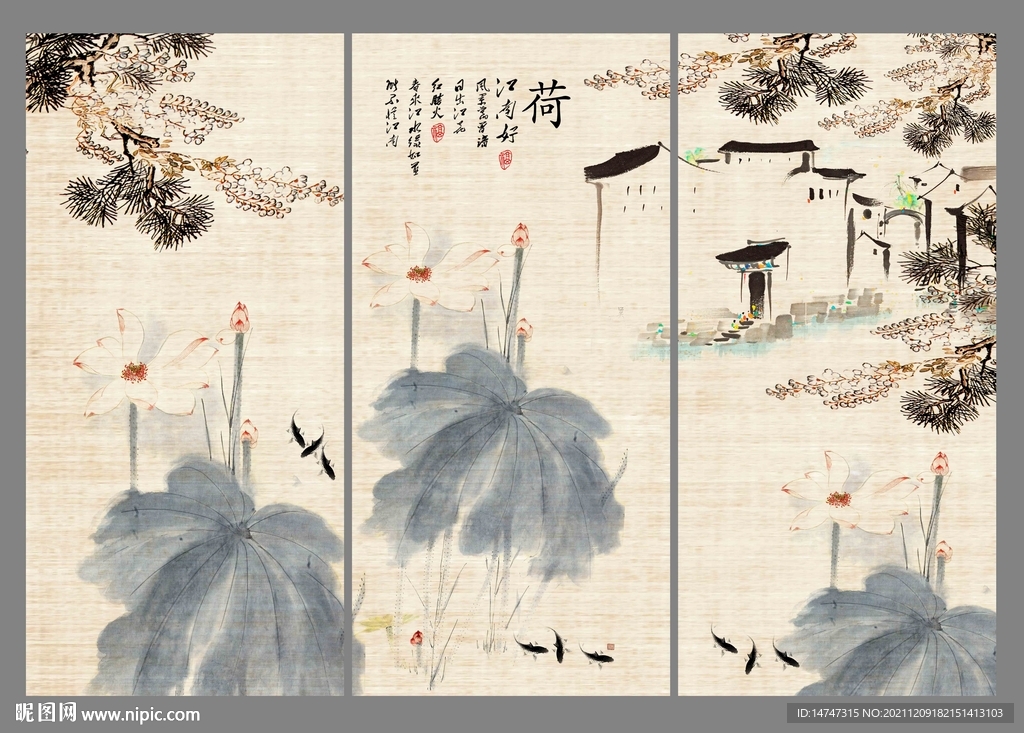 荷
江南好
风景舊曾谙
日出江花
红勝火
春来江水绿如蓝
能不忆江南
昵图网 www.nipic.com
ID:14747315 NO:20211209182151413103